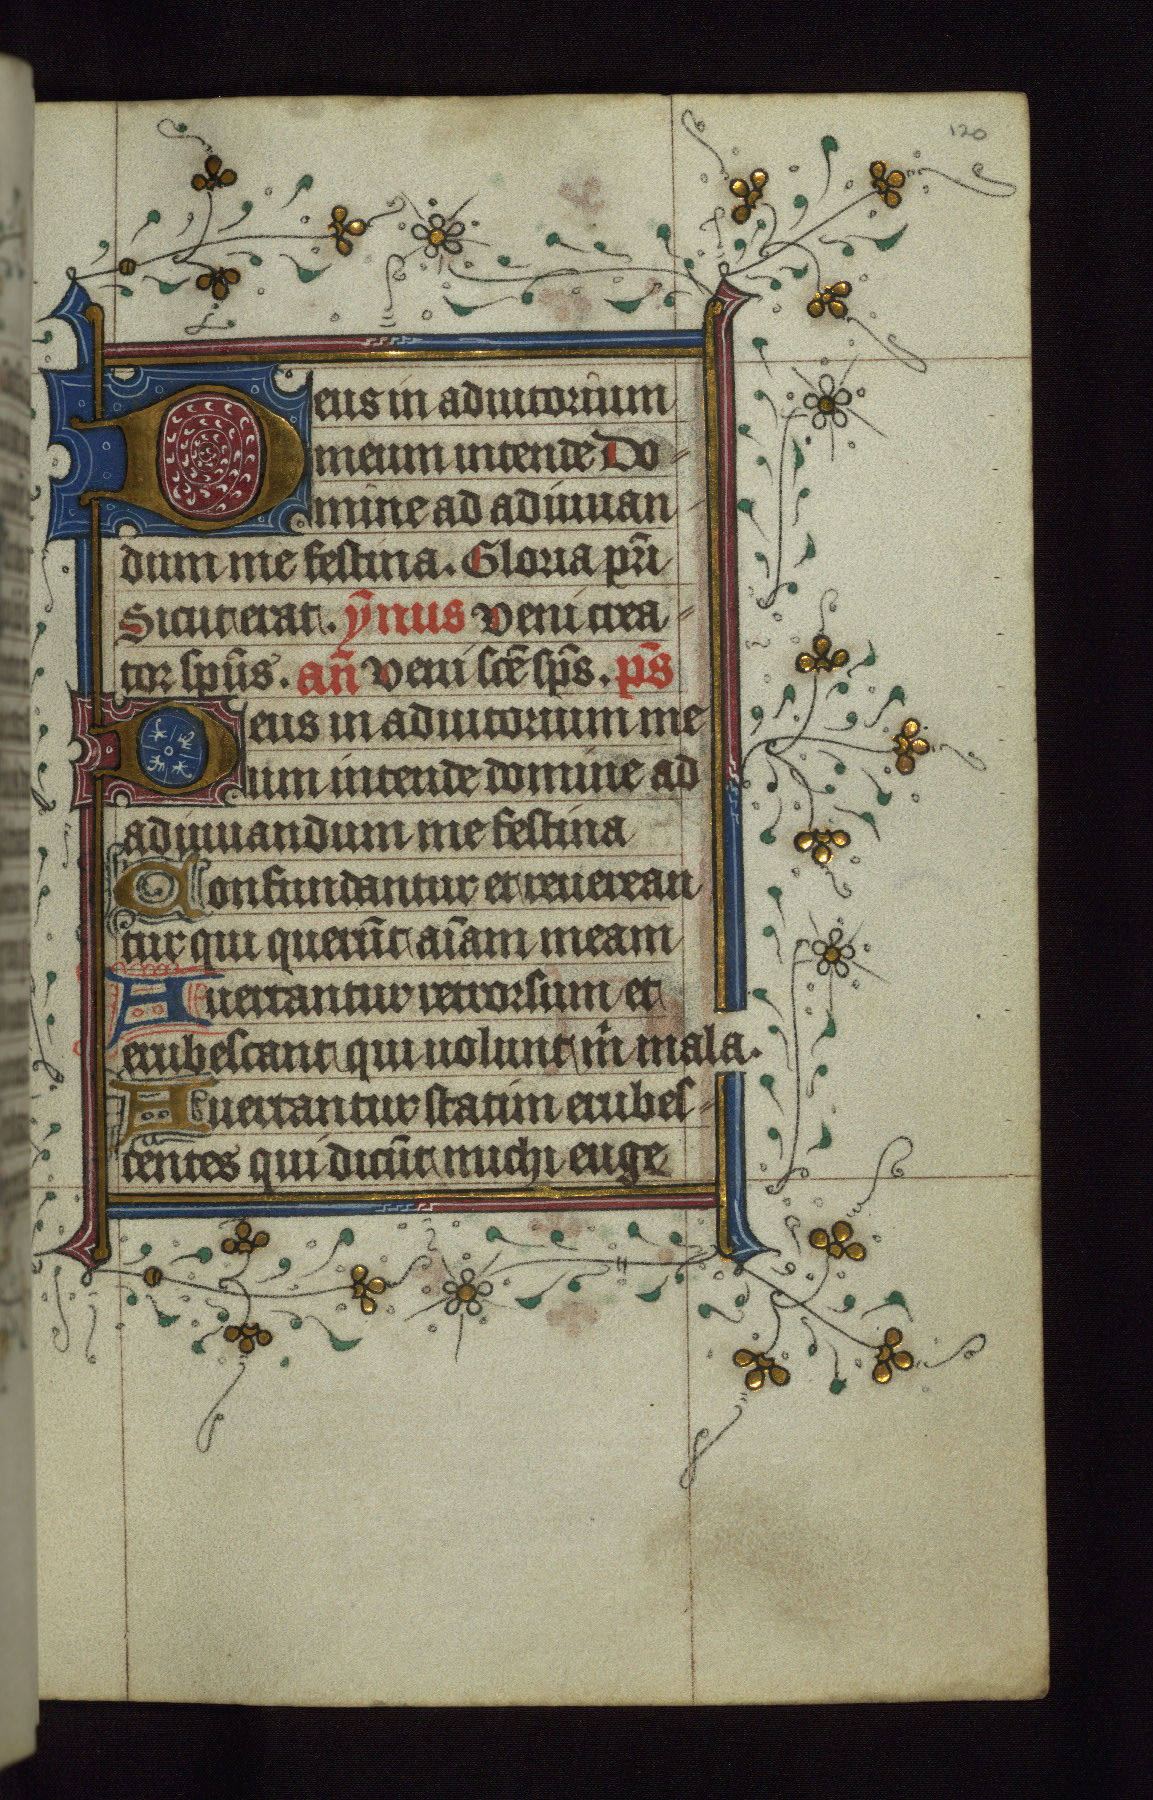 120
Deus in adiutorium
meum intende Do
mine ad adiuuan
dum me festina. Gloria pr̄i
Sicut erat. ȳnus veni crea
tor sp̄us. an̄ veni sc̄e sp̄s. p̄s
Deus in adiutorium me
um intende domine ad
adiuuandum me festina
Confundantur et reuerean
tur qui querūt aīam meam
Auertantur retrorsum et
erubescant qui uolunt m̄ mala.
Auertantur statim erubes
centes qui dicūt michi euge